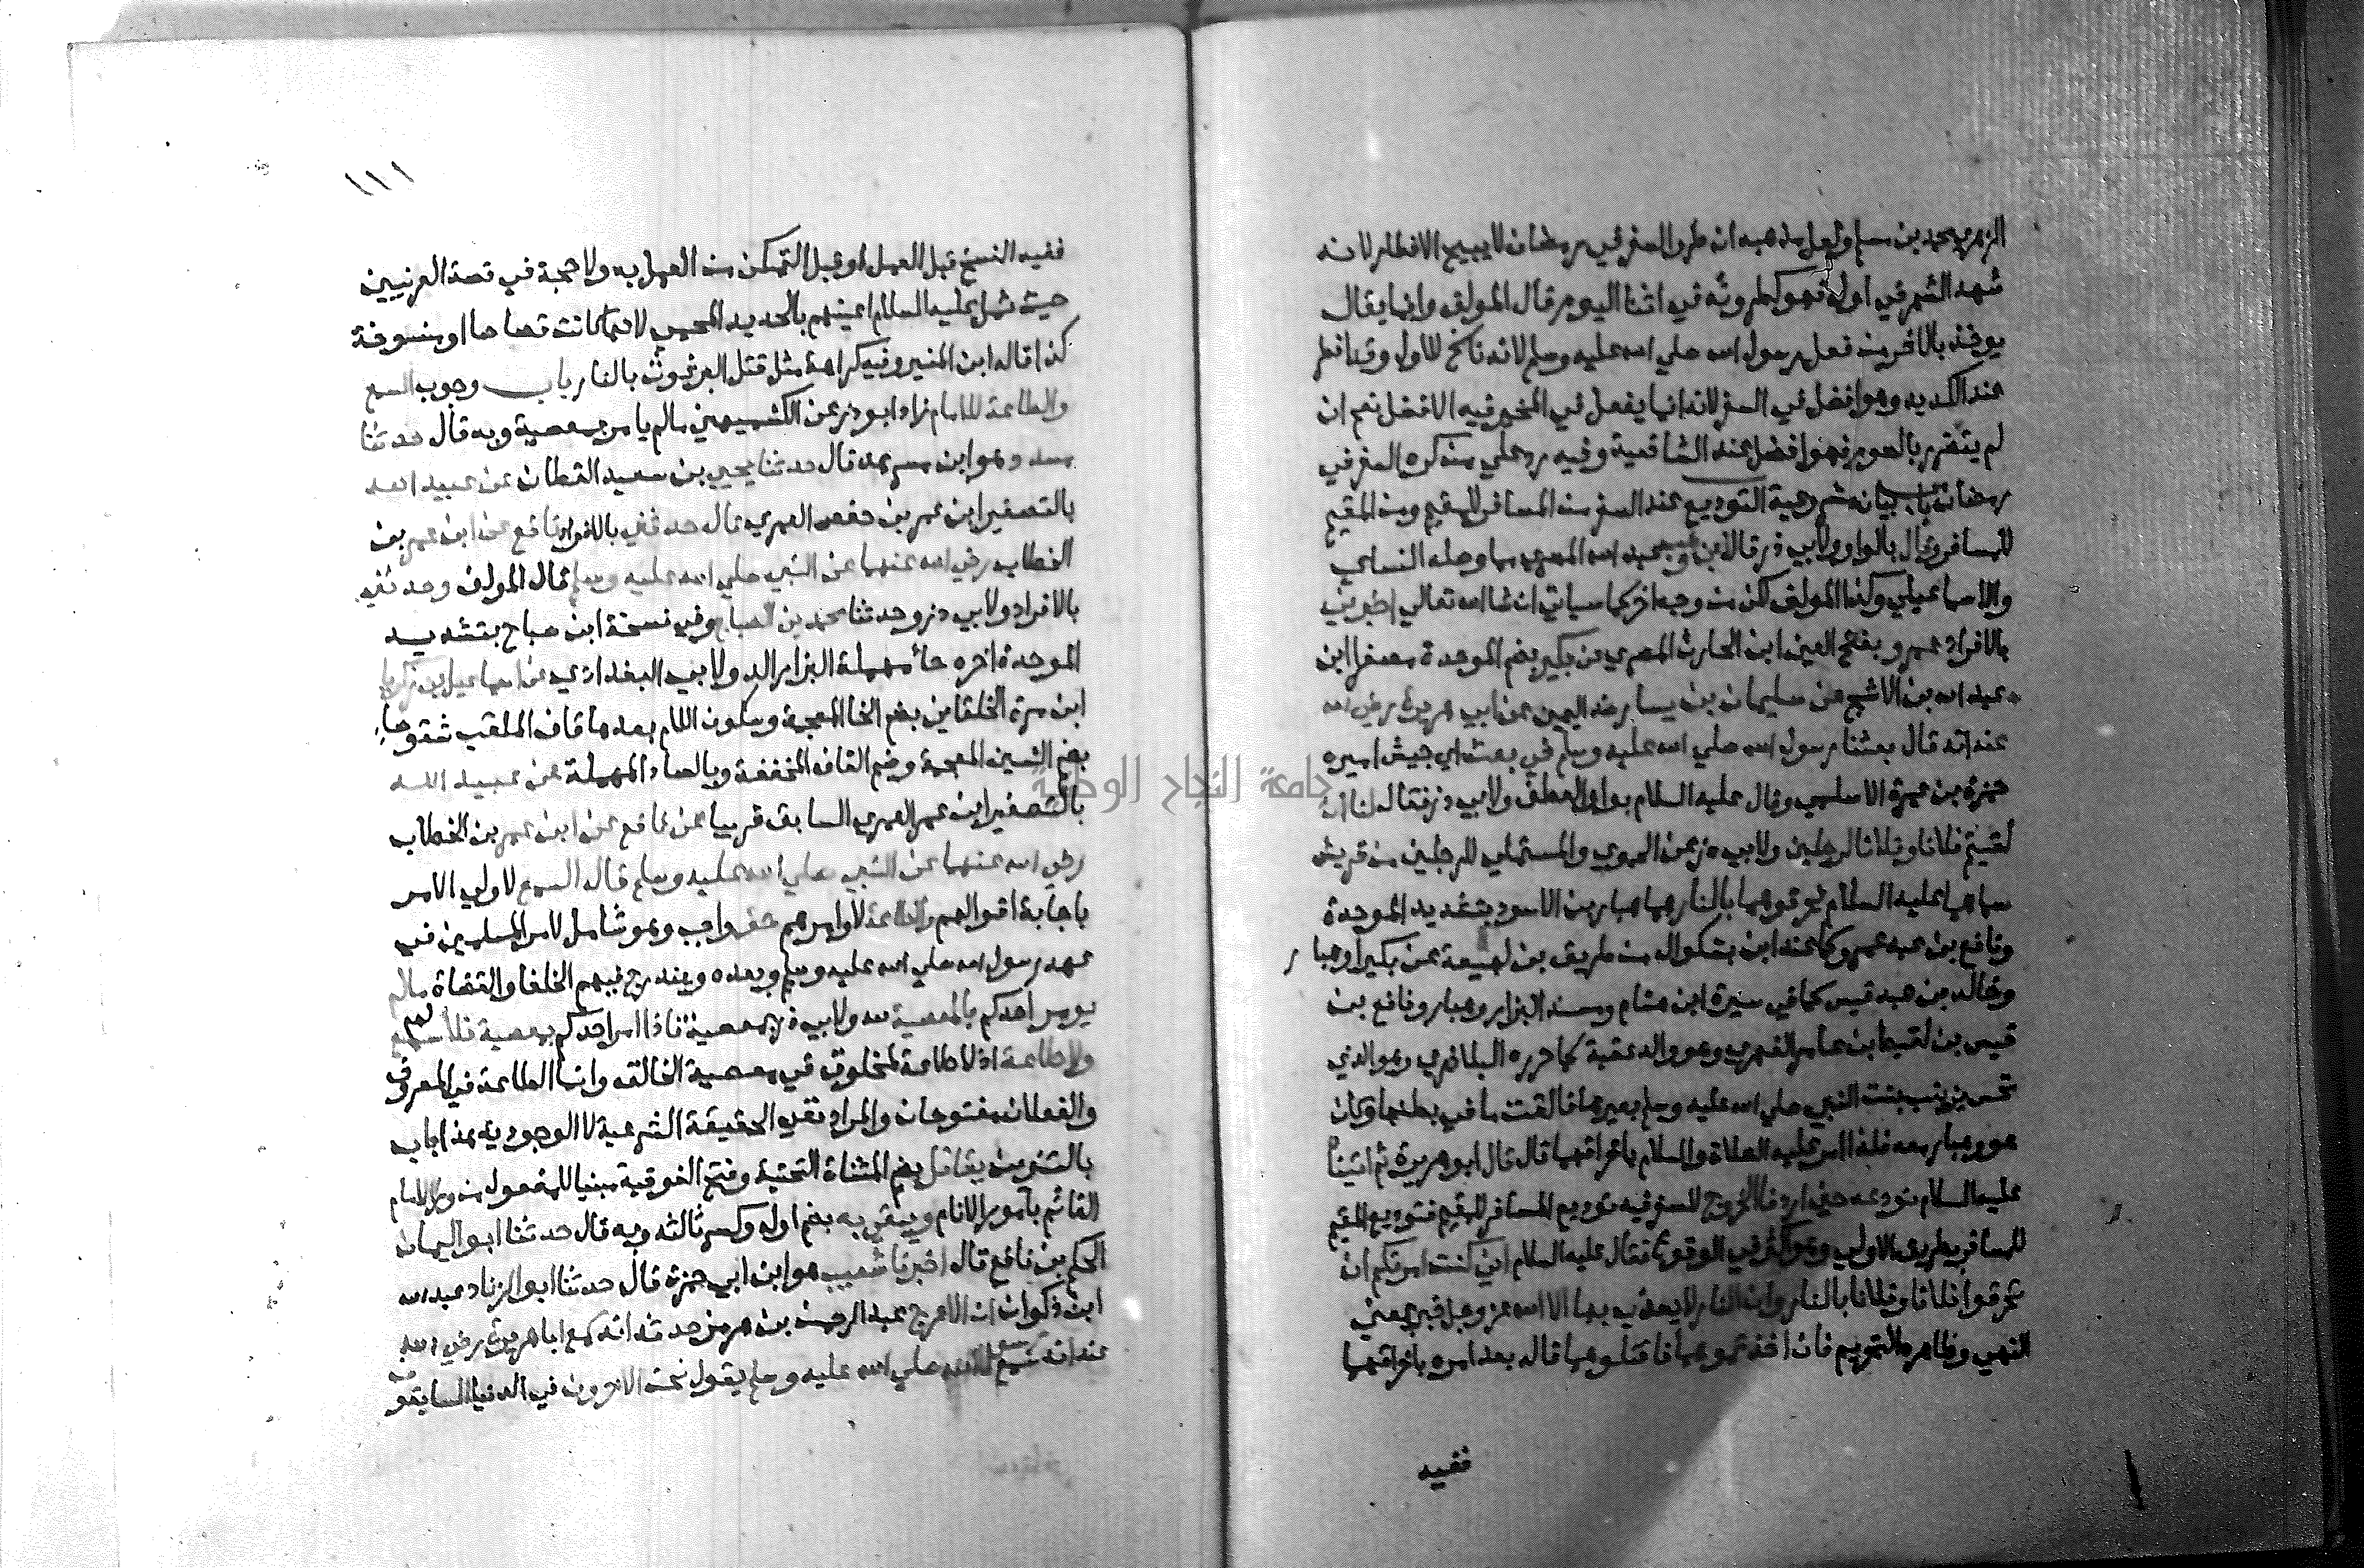 الزهري محمد بن مسلم ولعل مذهبه ان طرو السفر في رمضان لا يبيح الافطار لانه
شهد الشهر في اوله فهو كطروئه في اثنا اليوم قال المولف وانما يقال
يوخذ بالاخر من فعل رسول الله صلي الله عليه وسلم لانه ناسخ للاول وقد افطر
عند الكديد وهو افضل في السفر لانه انما يفعل في المخير فيه الافضل نعم ان
لم يتضرر بالصوم فهو افضل عند الشافعية وفيه رد علي من كره السفر في
رمضان باب بيان مشروعية التوديع عند السفر من المسافر للمقيم ومن المقيم
للمسافر وقال بالواو ولابي ذر قال ابن وهب عبد الله المصري مما وصله النساي
والاسماعيلي وكذا المولف لكن من وجه اخر كما سياتي ان شا الله تعالي اخبرني
بالافراد عمرو بفتح العين ابن الحارث المصري عن بكير بضم الموحدة مصغرا ابن
عبد الله بن الاشج عن سليمان بن يسار ضد اليمين عن ابي هريرة رضي الله
عنه انه قال بعثنا رسول الله صلي الله عليه وسلم في بعث اي جيش اميره
حمزة بن عمرو الاسلمي وقال عليه السلام بواو العطف ولابي ذر فقال لنا ان
لقيتم فلانا وفلانا لرجلين ولابي ذر عن الحموي والمستملي للرجلين من قريش
سماهما عليه السلام فحرقوهما بالنار هما هبار بن الاسود بتشديد الموحدة
ونافع بن عبد عمرو كما عند ابن بشكوال من طريق بن لهيعة عن بكير او هبار
وخالد بن عبد قيس كما في سيرة ابن هشام ومسند البزار وهبار ونافع بن
قيس بن لقيط بن عامر الفهري وهو والد عقبة كما حرره البلاذري وهو الذي
نخس بزينب بنت النبي صلي الله عليه وسلم بعيرها فالقت ما في بطنها وكان
هو وهبار معه فلذا امر عليه الصلاة والسلام باحراقهما قال قال ابو هريرة ثم اتيناه
عليه السلام نودعه حين اردنا الخروج للسفر فيه توديع المسافر للمقيم فتوديع المقيم
للمسافر بطريق الاولي وهو اكثر في الوقوع فقال عليه السلام اني كنت امرتكم ان
تحرقوا فلانا وفلانا بالنار وان النار لا يعذب بها الا الله عز وجل خبر بمعني
النهي وظاهره التحريم فان اخذتموهما فاقتلوهما قاله بعد امره باحراقهما
ففيه
١١١
ففيه النسخ قبل العمل او قبل التمكن من العمل به ولا حجة في قصة العرنيين
حيث سمل عليه السلام اعينهم بالحديد المحمي لانها كانت قصاصا او منسوخة
كذا قاله ابن المنير وفيه كراهة مثل قتل البرغوث بالنار باب وجوب السمع
والطاعة للامام زاد ابو ذر عن الكشميهني ما لم يامر بمعصية وبه قال حدثنا
مسدد وهو ابن مسرهد قال حدثنا يحيي بن سعيد القطان عن عبيد الله
بالتصغير ابن عمر بن حفص العمري قال حدثني بالافراد نافع عن ابن عمر بن
الخطاب رضي الله عنهما عن النبي صلي الله عليه وسلم قال المولف وحدثني
بالافراد ولابي ذر وحدثنا محمد بن الصباح وفي نسخة ابن صباح بتشديد
الموحدة اخره حا مهملة البزار الدولابي البغدادي عن اسماعيل بن زكريا
ابن مرة الخلقاني بضم الخا المعجمة وسكون اللام بعدها قاف الملقب شقوصا
بضم الشين المعجمة وضم القاف المخففة وبالصاد المهملة عن عبيد الله
بالتصغير ابن عمر العمري السابق قريبا عن نافع عن ابن عمر بن الخطاب
رضي الله عنهما عن النبي صلي الله عليه وسلم قال السمع لاولي الامر
باجابة اقوالهم والطاعة لاوامرهم حق واجب وهو شامل لامر المسلمين في
عهد رسول الله صلي الله عليه وسلم وبعده ويندرج فيهم الخلفا والقضاة ما لم
يومر احدكم بالمعصية لله ولابي ذر بمعصية فاذا امر احدكم بمعصية فلا سمع لهم
ولا طاعة اذ لا طاعة لمخلوق في معصية الخالق وانما الطاعة في المعروف
والفعلان مفتوحان والمراد نفي الحقيقة الشرعية لا الوجودية هذا باب
بالتنوين يقاتل بضم المثناة التحتية وفتح الفوقية مبنيا للمفعول من ورا الامام
القائم بامور الانام ويتقي به بضم اوله وكسر ثالثه وبه قال حدثنا ابو اليمان
الحكم بن نافع قال اخبرنا شعيب هو ابن ابي حمزة قال حدثنا ابو الزناد عبد الله
ابن ذكوان ان الاعرج عبد الرحمن بن هرمز حدثه انه سمع ابا هريرة رضي الله
عنه انه سمع رسول الله صلي الله عليه وسلم يقول نحن الاخرون في الدنيا السابقون
جامعة النجاح الوطنية